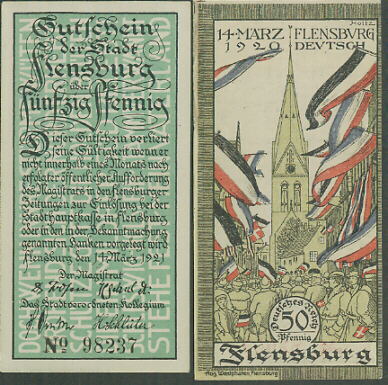 Gutschein
der Stadt
Flensburg
über
fünfzig Pfennig
Dieser Gutschein verliert
seine Gültigkeit wenn er
nicht innerhalb eines Monats nach
erfolgter öffentlicher Aufforderung
des Magistrats in den flensburger
Zeitungen zur Einlösung bei der
Stadthauptkasse in flensburg,
oder in den in der Bekanntmachung
genannten Banken vorgelegt wird
Flensburg den 14. März 1921
Der Magistrat
Das Stadtverordneten Kollegium
No 98237
Holtz
14. MÄRZ FLENSBVRG
1920 DEVTSCH
Deutsches Reich
50
Pfennig
Flensburg